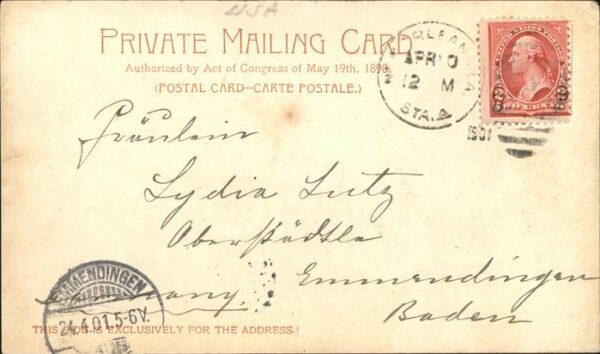 USA
PRIVATE MAILING CARD
Authorized by Act of Congress of May 19th, 1898.
(POSTAL CARD—CARTE POSTALE.)
ORLEANS, LA
APR 10
12 M
STA. A
1901
TWO CENTS
Fräulein
Lydia Lutz
Oberstädtle
Emmendingen
Germany.
Baden
EMMENDINGEN
24.4.01.5-6V.
THIS SIDE IS EXCLUSIVELY FOR THE ADDRESS.